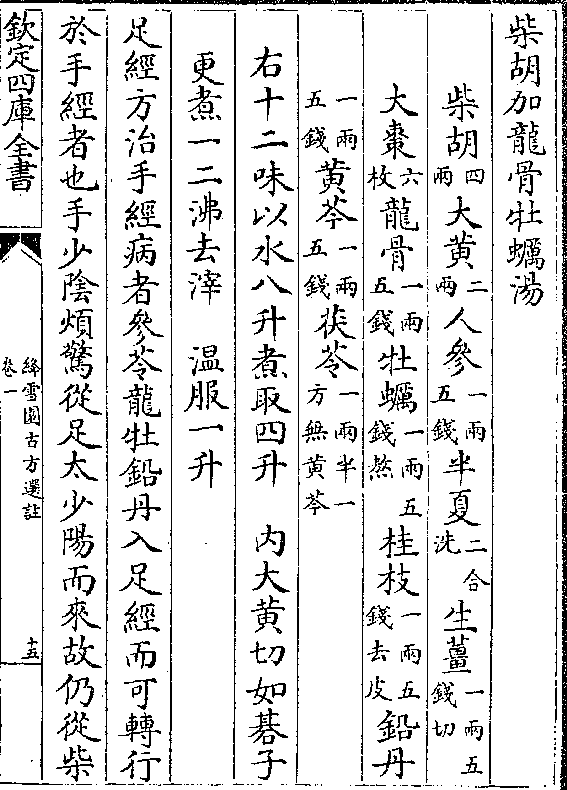 柴胡加龍骨牡蠣湯
柴胡四兩大黄二兩人參一兩五錢半夏二合洗生薑一兩五錢切
大棗六枚龍骨一兩五錢牡蠣一兩五錢熬桂枝一兩五錢去皮鉛丹
一兩五錢黄芩一兩五錢茯苓一兩半一方無黄芩
右十二味以水八升煮取四升 内大黄切如碁子
更煮一二沸去滓 温服一升
足經方治手經病者參苓龍牡鉛丹入足經而可轉行
於手經者也手少陰煩驚從足太少陽而來故仍從柴
欽定四庫全書
絳雪園古方選註
卷一
十五